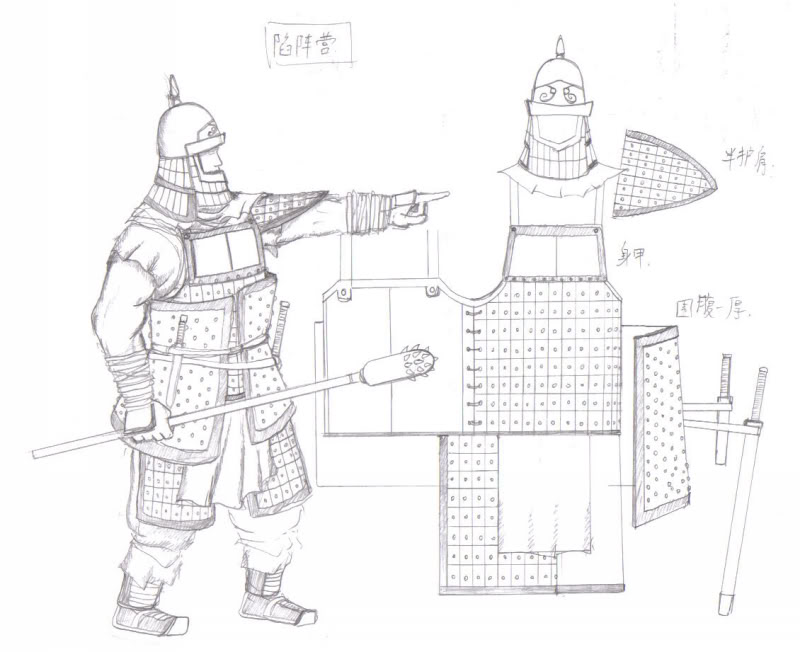 陷阵营
半护肩.
身甲.
围腹-厚.